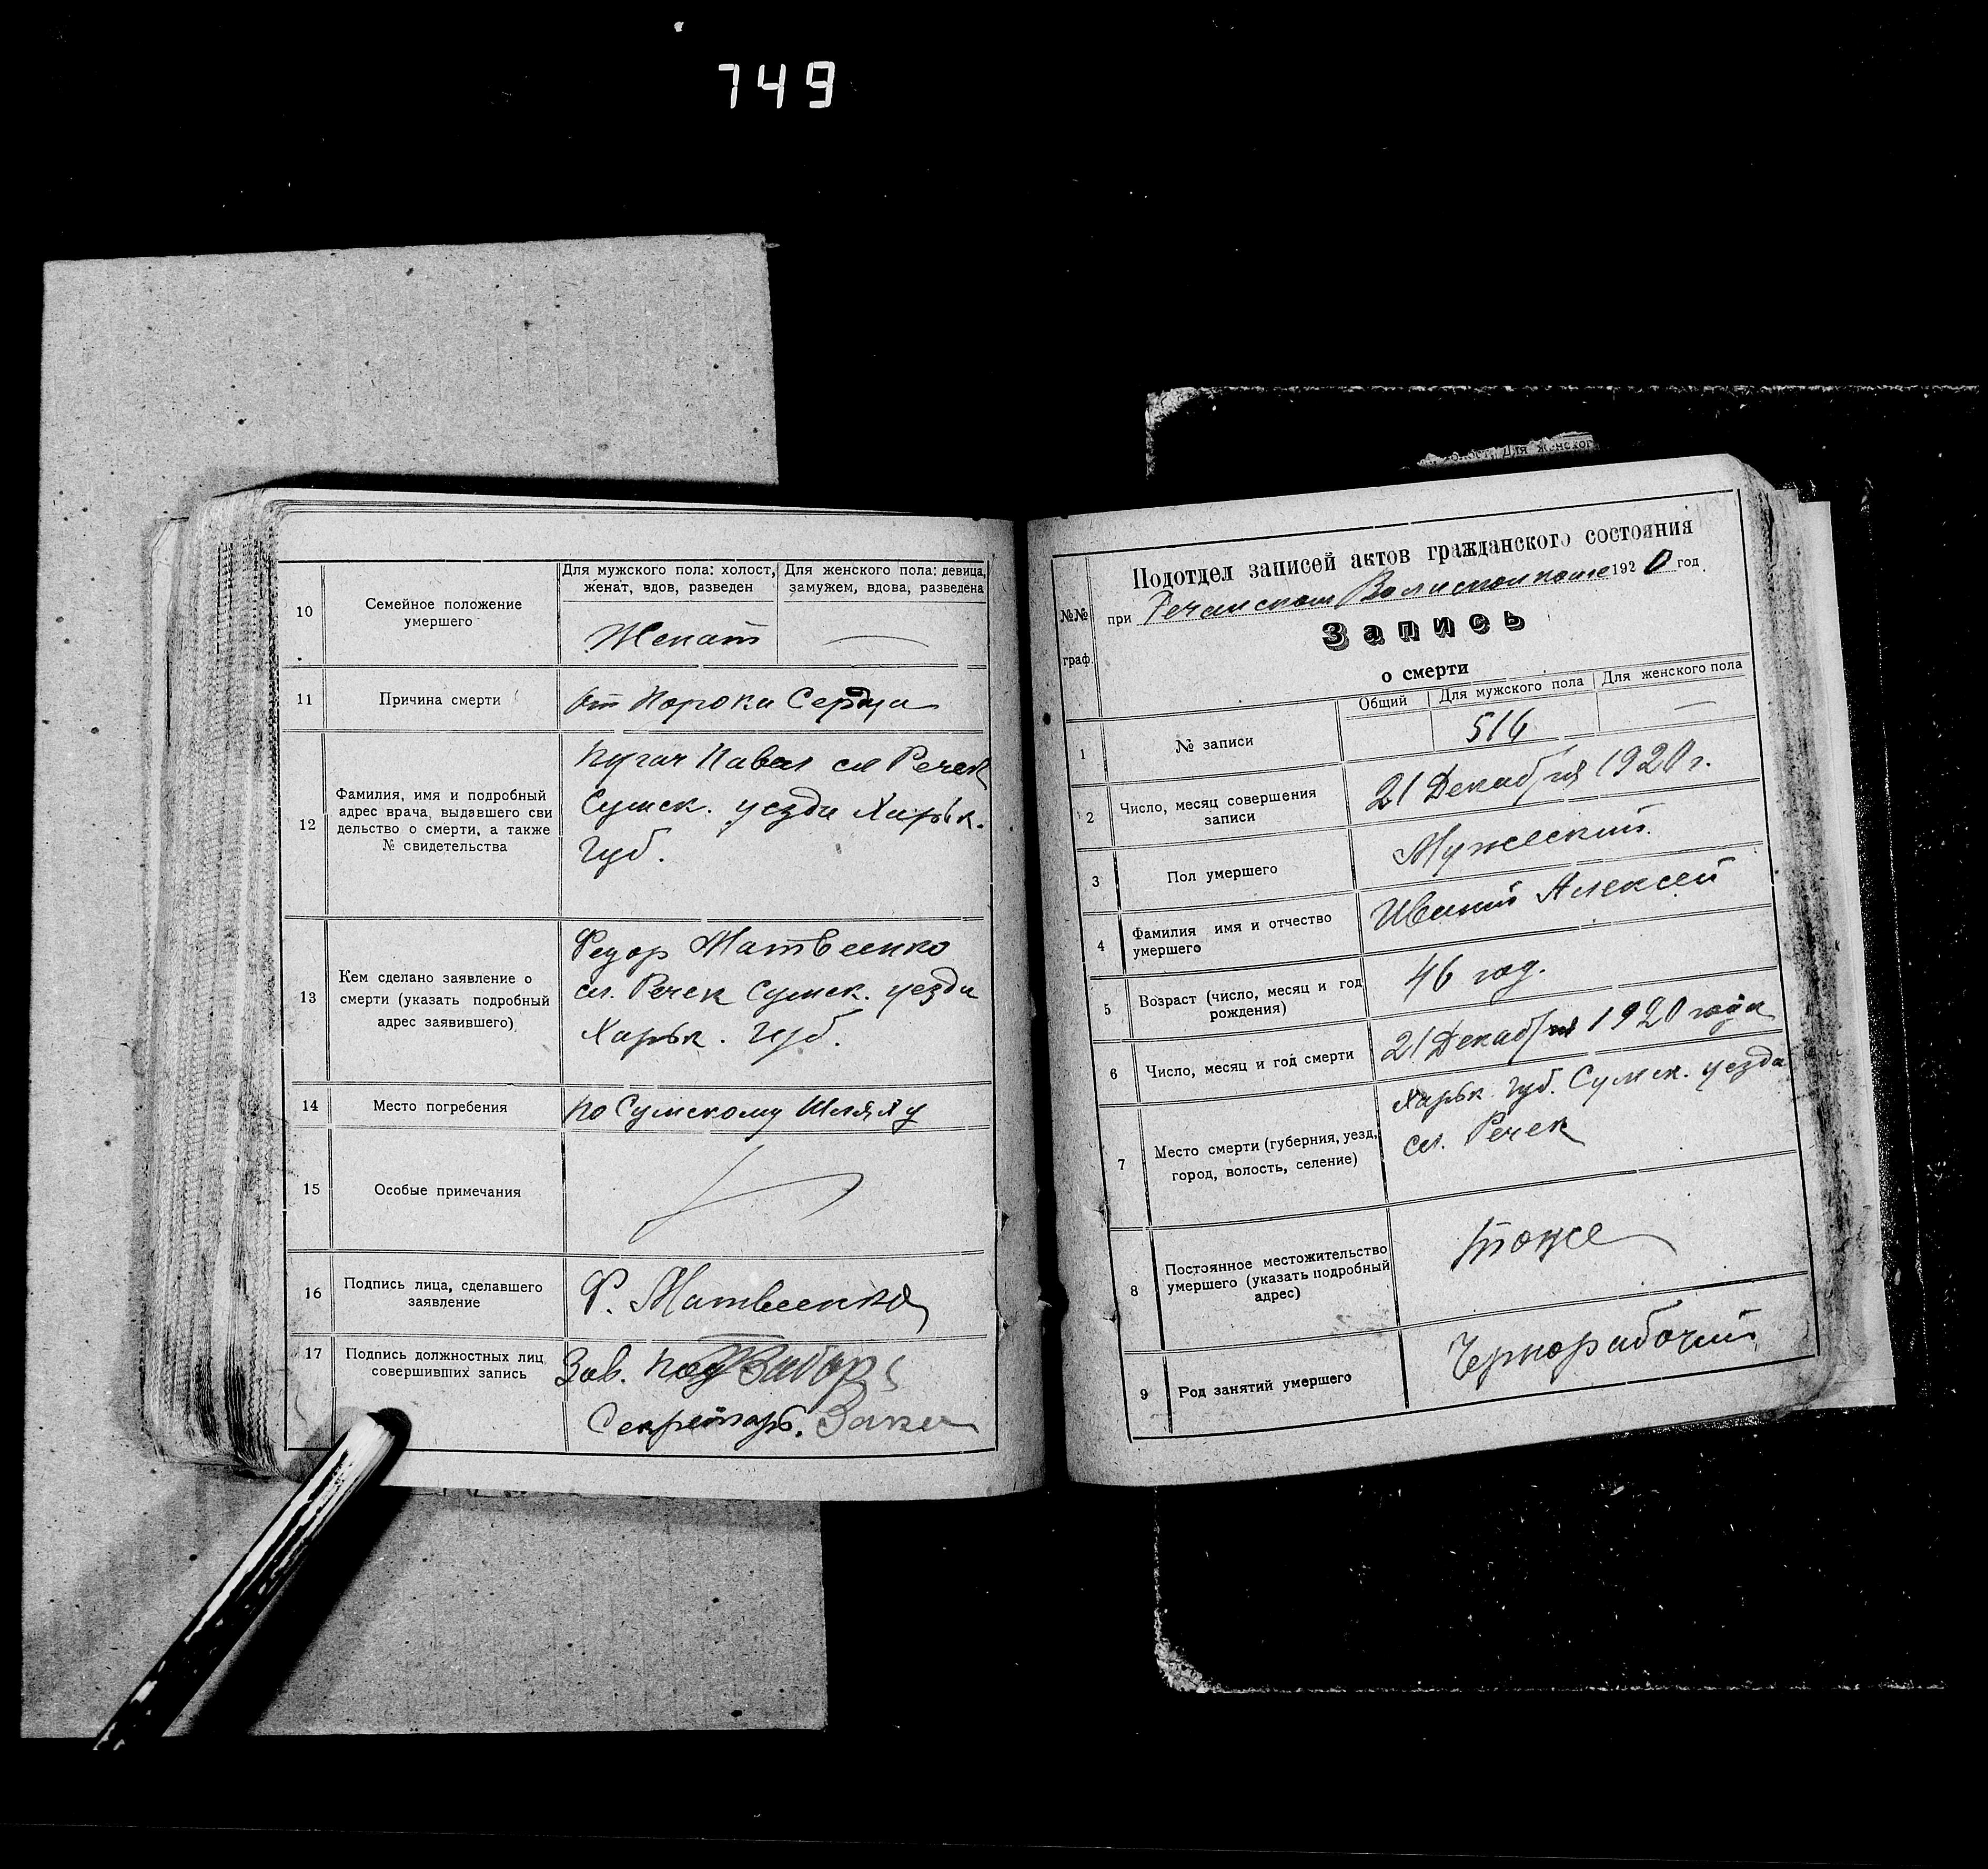 749
10
Семейное положение
умершего
Для мужского пола: холост,
женат, вдов, разведен
Для женского пола: девица,
замужем, вдова, разведена
Женат
—
11
Причина смерти
От Порока Сердца
12
Фамилия, имя и подробный
адрес врача, выдавшего сви
дельство о смерти, а также
№ свидетельства
Пугач Павел сл Речек
Сумск. уезда Харьк.
Губ.
13
Кем сделано заявление о
смерти (указать подробный
адрес заявившего)
Федор Матвеенко
сл. Речек Сумск. уезда
Харьк. Губ.
14
Место погребения
по Сумскому Шляху
15
Особые примечания
16
Подпись лица, сделавшего
заявление
Ф. Матвеенко
17
Подпись должностных лиц
совершивших запись
Зав. Под
Секретарь.
для женског
№№
граф.
Подотдел записей актов гражданского состояния
при Речанском Волисполкоме 1920 год.
Запись
о смерти
Общий
Для мужского пола
Для женского пола
1
№ записи
516
—
2
Число, месяц совершения
записи
21 Декабря 1920 г.
3
Пол умершего
Мужеский.
4
Фамилия имя и отчество
умершего
Алексей
5
Возраст (число, месяц и год
рождения)
46 год.
6
Число, месяц и год смерти
21 Декабря 1920 года
7
Место смерти (губерния, уезд,
город, волость, селение)
Харьк. губ. Сумск. уезда
сл. Речек
8
Постоянное местожительство
умершего (указать подробный
адрес)
тоже
9
Род занятий умершего
Чернорабочий